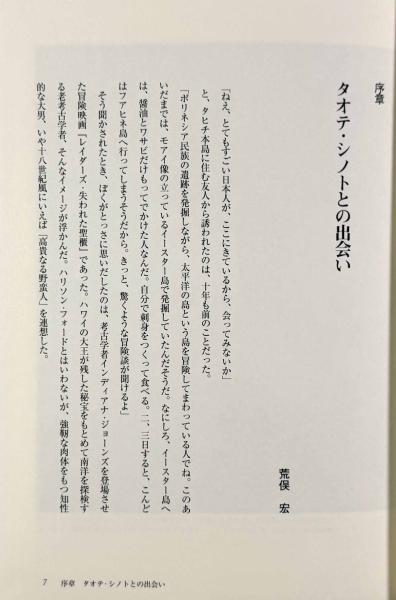 序章
タオテ・シノトとの出会い
荒俣 宏
「ねえ、とてもすごい日本人が、ここにきているから、会ってみないか」
と、タヒチ本島に住む友人から誘われたのは、十年も前のことだった。
「ポリネシア民族の遺跡を発掘しながら、太平洋の島という島を冒険してまわっている人でね。このあ
いだまでは、モアイ像の立っているイースター島で発掘していたんだそうだ。なにしろ、イースター島へ
は、醤油とワサビだけもってでかけた人なんだ。自分で刺身をつくって食べる。二、三日すると、こんど
はフアヒネ島へ行ってしまうそうだから。きっと、驚くような冒険談が聞けるよ」
そう聞かされたとき、ぼくがとっさに思いだしたのは、考古学者インディアナ・ジョーンズを登場させ
た冒険映画『レイダーズ・失われた聖櫃』であった。ハワイの大王が残した秘宝をもとめて南洋を探検す
る老考古学者、そんなイメージが浮かんだ。ハリソン・フォードとはいわないが、強靭な肉体をもつ知性
的な大男、いや十八世紀風にいえば「高貴なる野蛮人」を連想した。
7 序章 タオテ・シノトとの出会い